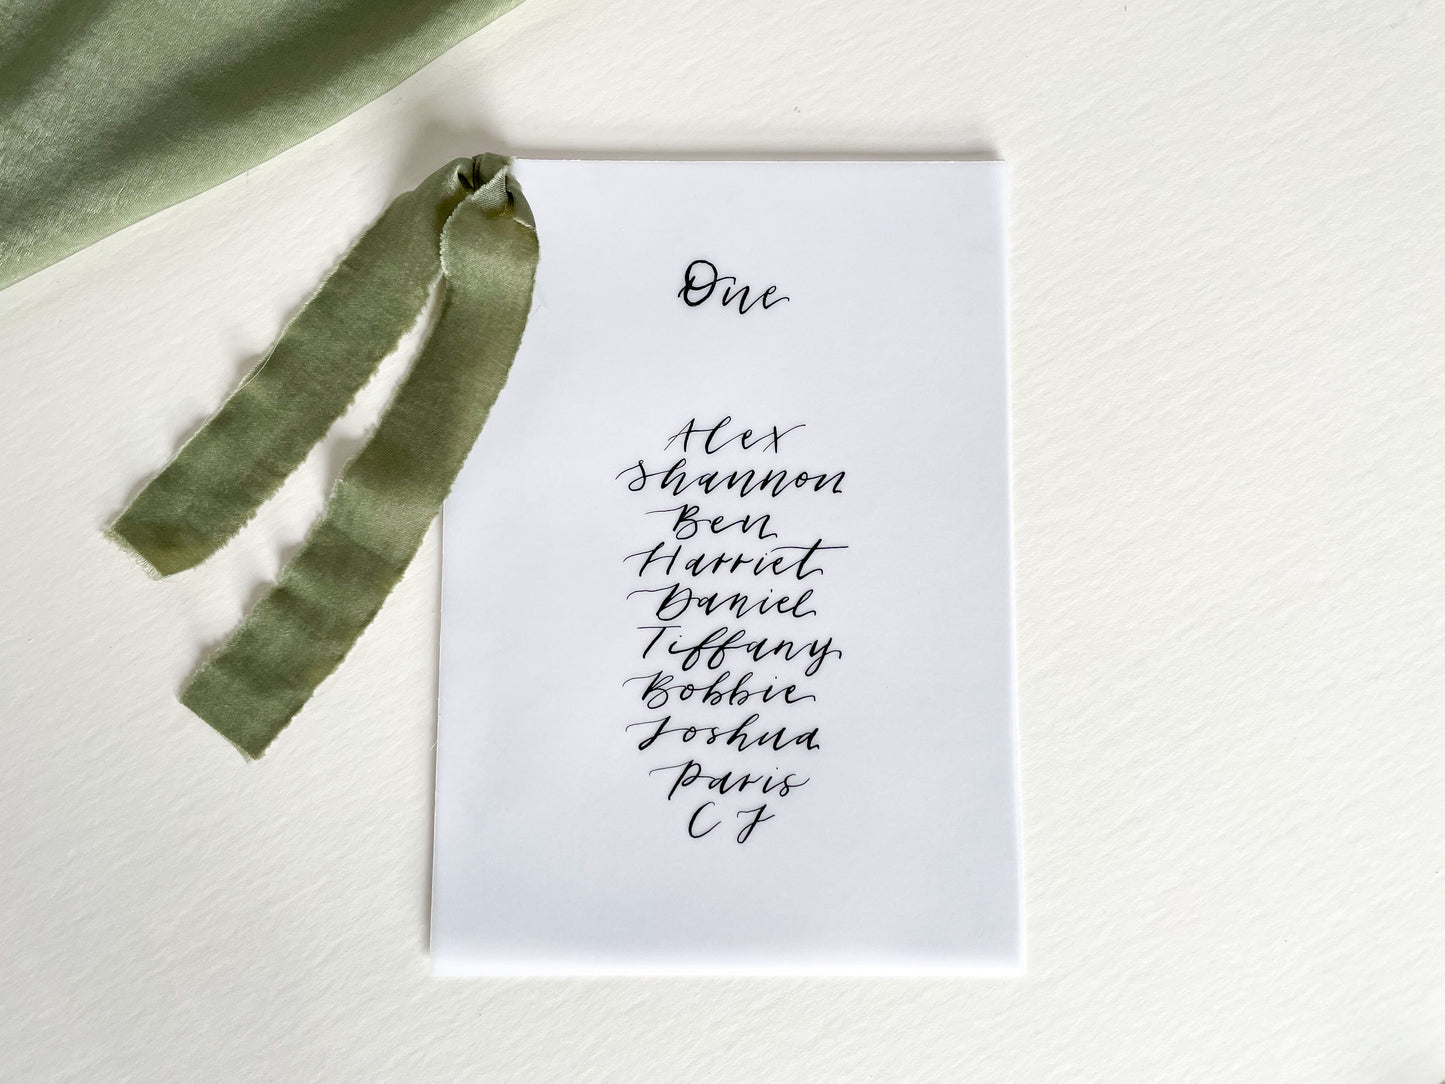 One
Alex
Shannon
Ben
Harriet
Daniel
Tiffany
Bobbie
Joshua
Paris
C J